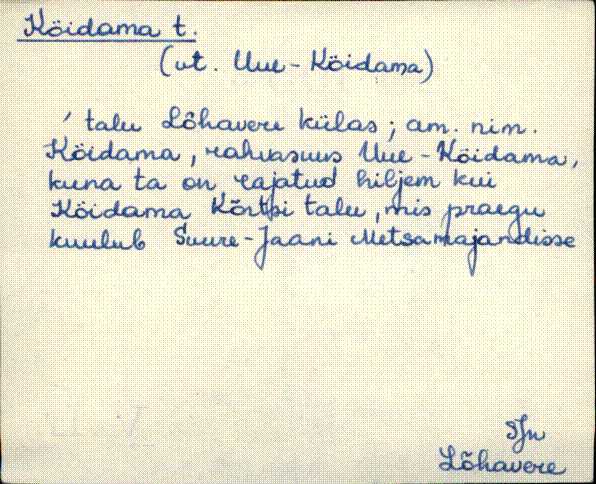 Köidama t.
(vt. Uue-Köidama)
' talu Lõhavere külas; am. nim.
Köidama, rahvasuus Uue-Köidama,
kuna ta on rajatud hiljem kui
Köidama Kõrtsi talu, mis praegu
kuulub Suure-Jaani Metsamajandisse
SJn
Lõhavere